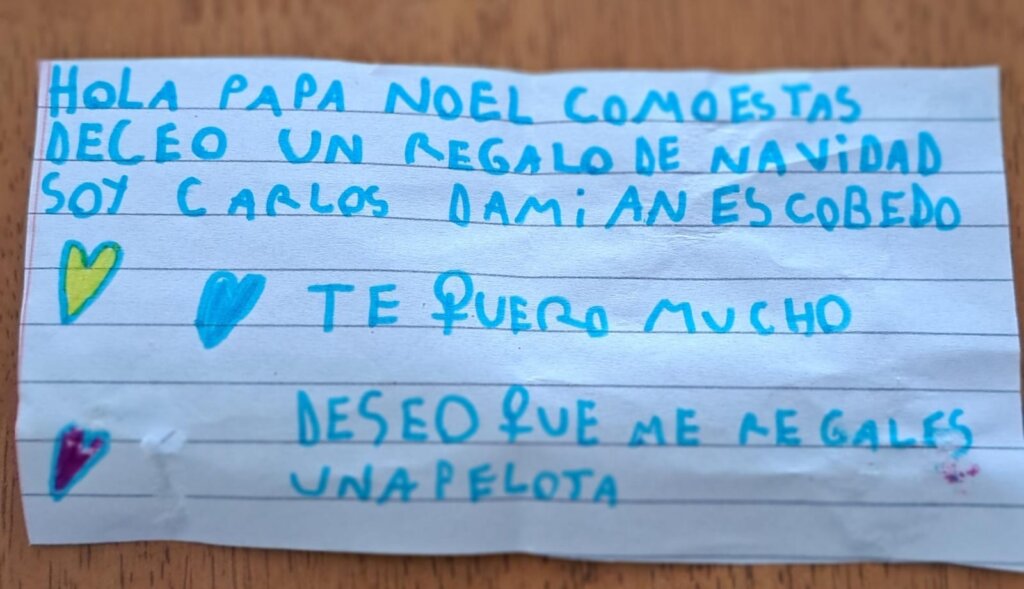 HOLA PAPA NOEL COMOESTAS
DECEO UN REGALO DE NAVIDAD
SOY CARLOS DAMIAN ESCOBEDO
TE QUERO MUCHO
DESEO QUE ME REGALES
UNA PELOTA